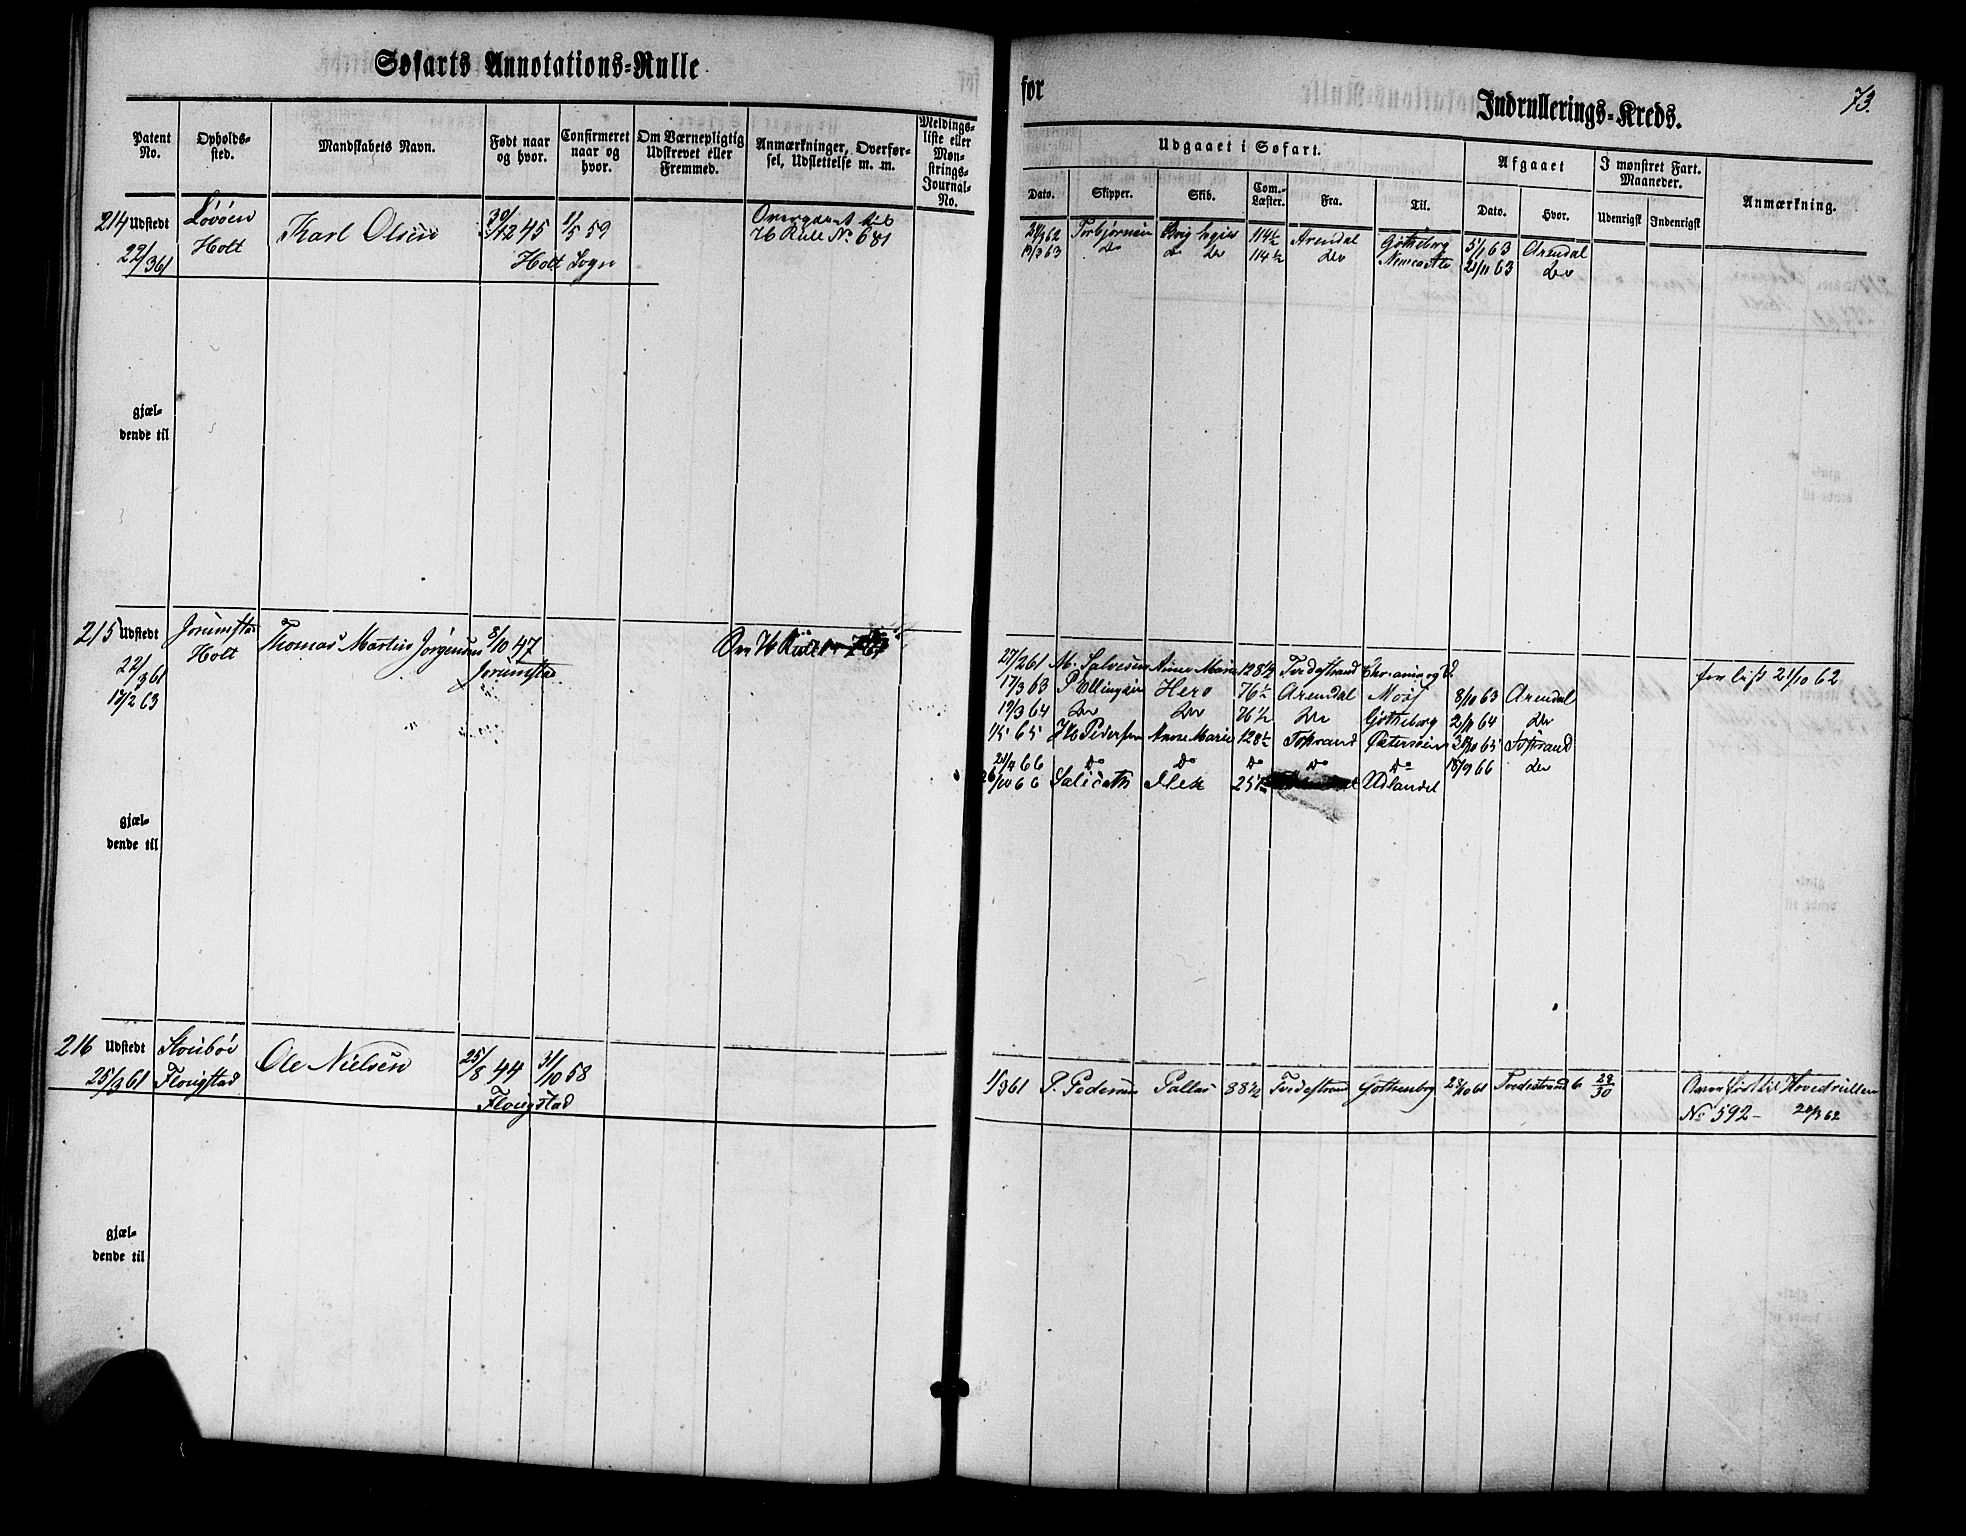 Søfarts Annotations=Rulle
for
Indrullerings=Kreds.
73.
Patent No.
Opholds-sted.
Mandskabets Navn.
Født naar og hvor.
Confirmeret naar og hvor.
Om Værnepligtig Udskrevet eller Fremmed.
Anmærkninger, Overfør-sel, Udslettelse m. m.
Meldings-liste eller Møn-strings-Journal-No.
Udgaaet i Søfart.
Afgaaet
I mønstret Fart. Maaneder.
Anmærkning.
Dato.
Skipper.
Skib.
Com.-Læster.
Fra.
Til.
Dato.
Hvor.
Udenrigst
Indenrigst
214 Udstedt Løvøen Karl Olsen 30/12 45 1/5 59 Overgaaet til
22/3 61 Holt Holt Sogn H Rulle No. 681
Torbjørnsen Brig 114½ Arendal Gøtheborg 5/1 63 Arendal
19/3 63 do do do 114½ do Newcastle 21/11 63 do
gjæl-
dende til
215 Udstedt Holt Thomas Martin Jørgensen 8/10 47 H Rulle
22/3 61
17/2 63
27/2 61 M. Salvesen Anne Marie 128½ Tvedestrand for list 21/10 62
17/3 63 Hero 76½ Arendal 8/10 63 Arendal
19/3 64 do do 76½ do Gøtheborg 2/11 64 do
1/5 65 Pedersen Anne Marie 128½
21/4 66 do do do do do 18/9 66 do
26/10 66 Udlandet
gjæl-
dende til
216 Udstedt Ole Nielsen 25/8 44 31/10 58
25/3 61 Flougstad Flougstad
1/3 61 P. Pedersen Pallas 88½ Tvedestrand Gothenborg 28/10 61 Tvedestrand 6 28/30 Overført til Hovedrullen
No 592 - 28/3 62
gjæl-
dende til